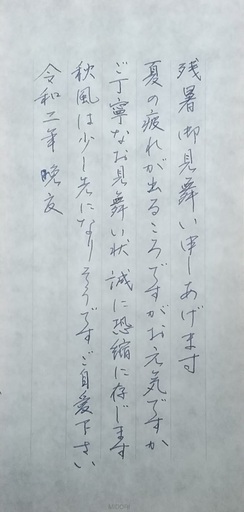 残暑御見舞い申しあげます
夏の疲れが出るころですがお元気ですか
ご丁寧なお見舞い状 誠に恐縮に存じます
秋風は少し先になりそうです ご自愛下さい
令和二年 晩夏